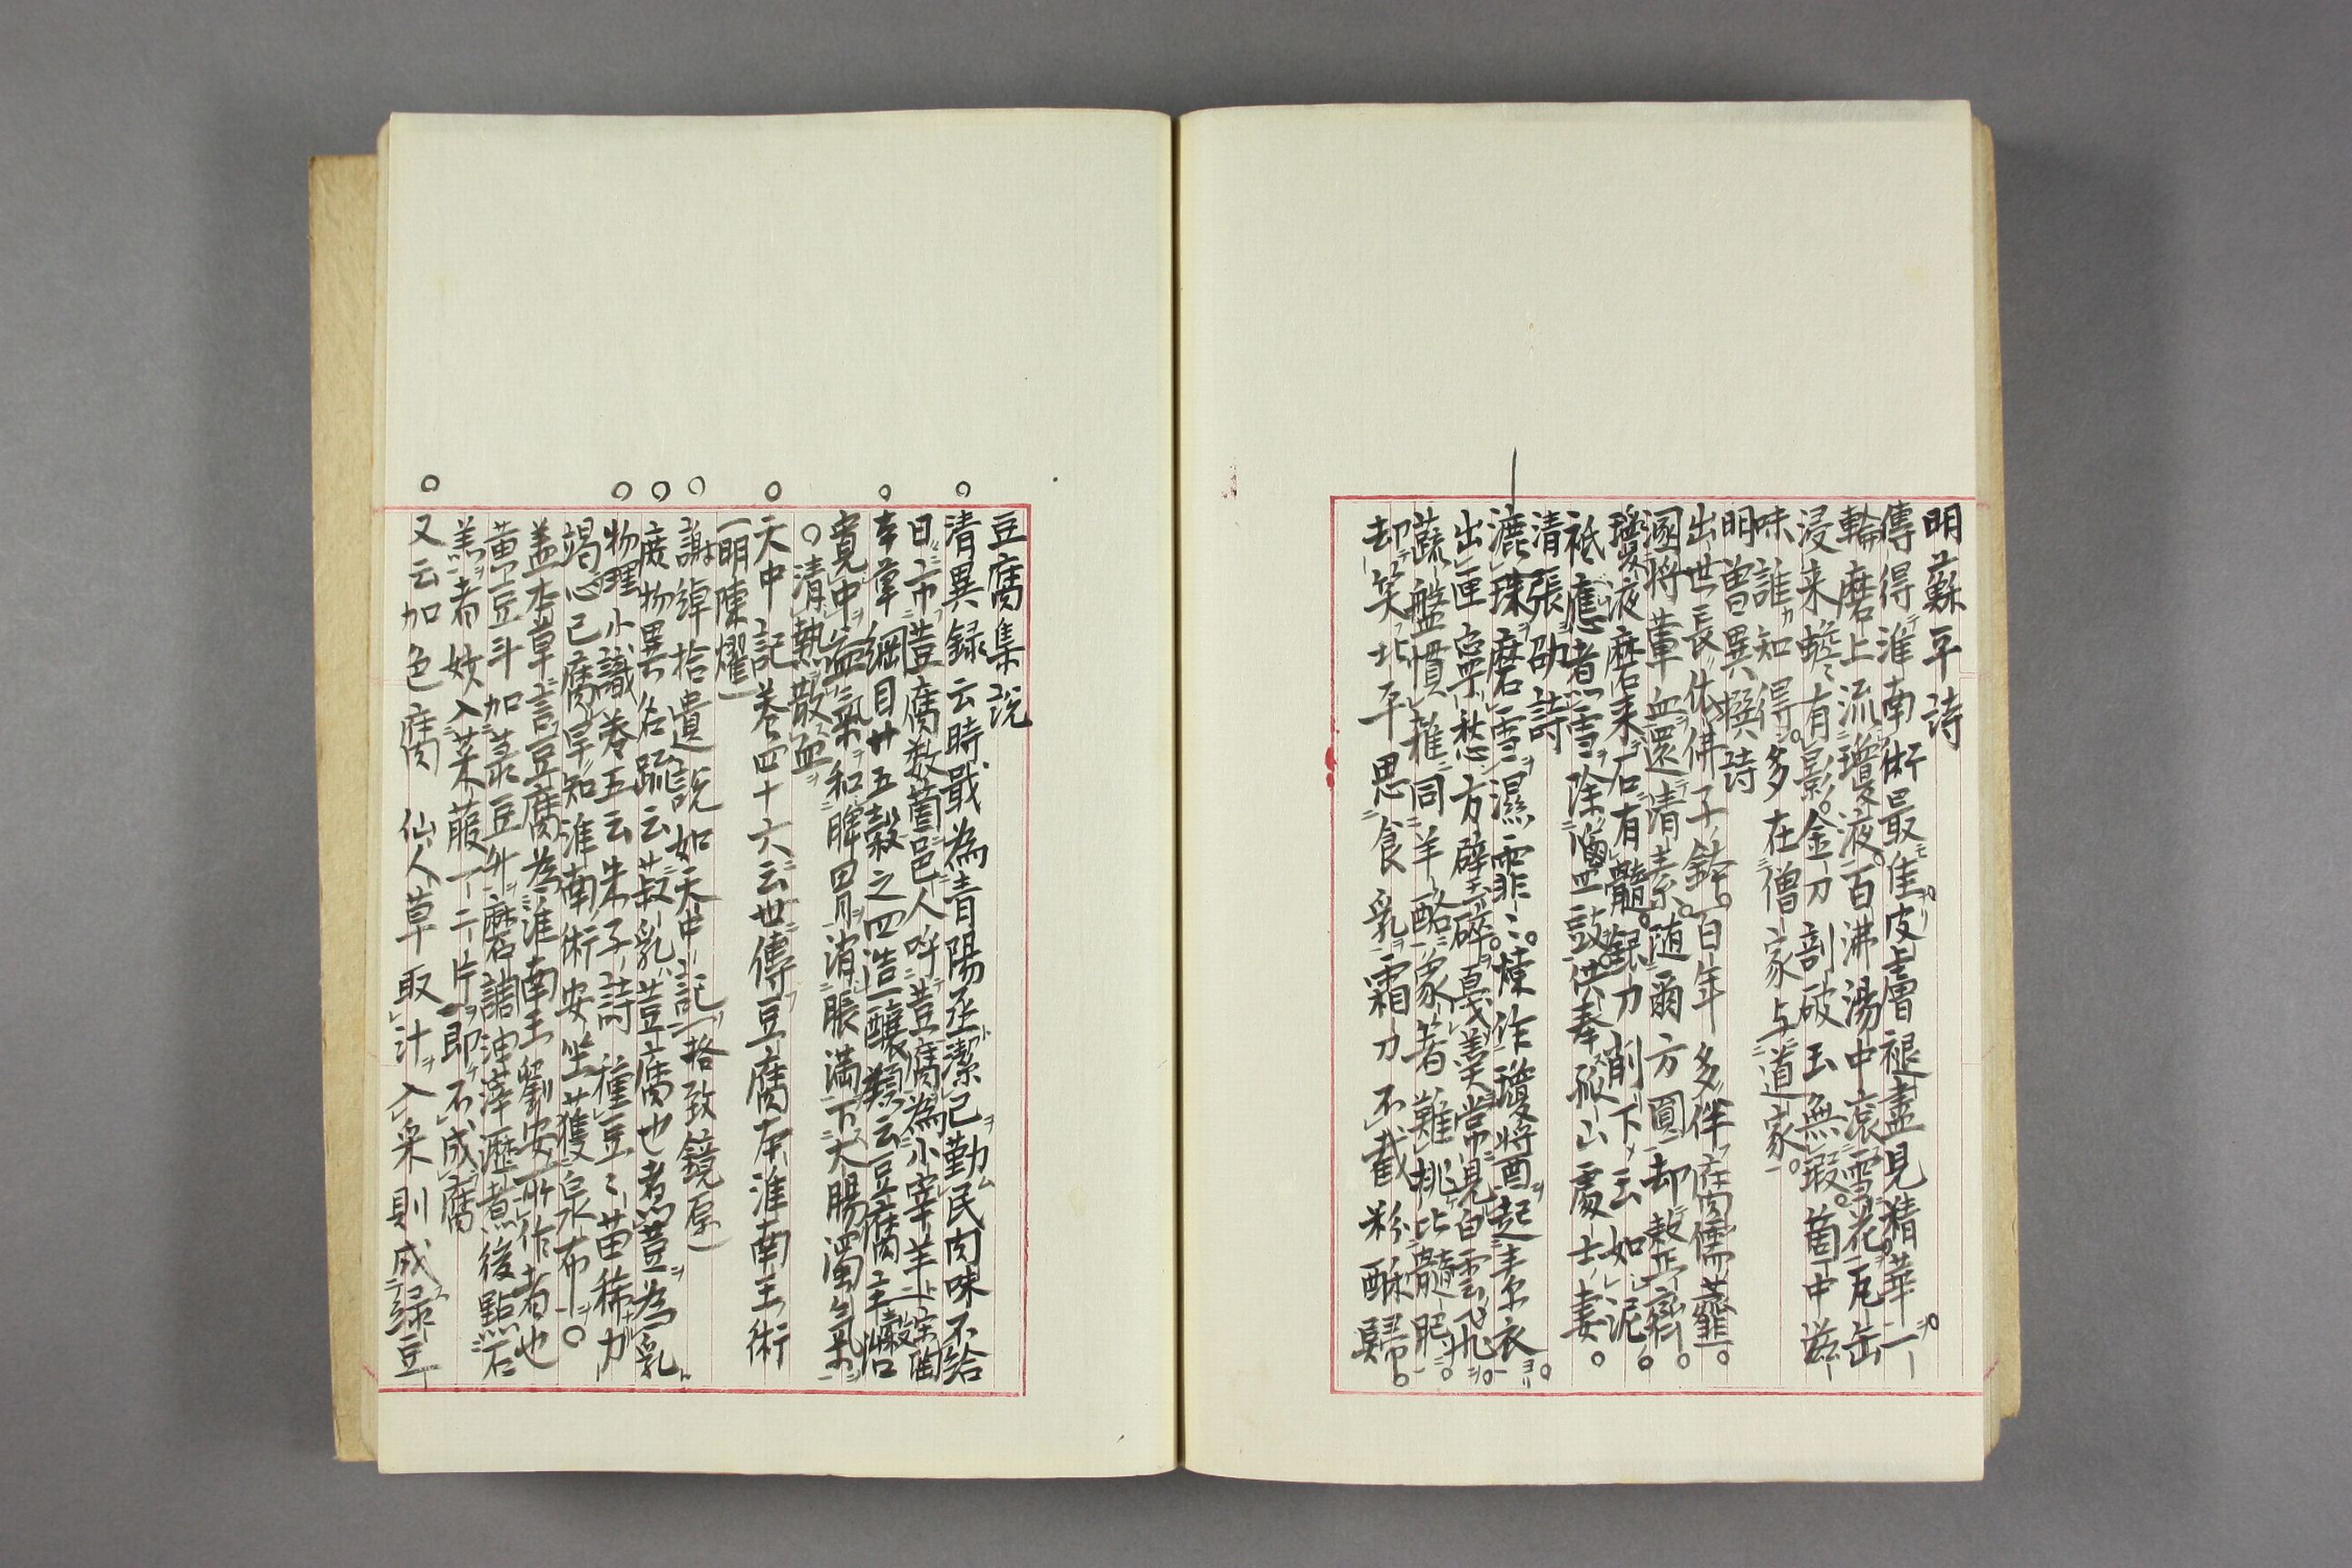 明蘇平詩
傳得淮南術最佳皮膚褪盡見精華一
輪磨上流瓊液百沸湯中滾雪花瓦缶
浸来蟾有影金刀剖破玉無瑕箇中滋
味誰知得多在僧家与道家
明曽異撰詩
出世長依佛子鉢百年多伴腐儒虀
溷將葷血還清素随爾方圓却整齊
瓊液磨来石有髓銀刀削下玉如泥
祗應煮雪除鹽豉供奉孤山處士妻
清張劭詩
漉珠磨雪濕霏〻煉作瓊漿起素衣
出匣寧愁方璧碎憂羹常見白雲飛
蔬盤慣雜同羊酪象箸難挑比髓肥
却笑北平思食乳霜刀不截粉酥歸
豆腐集説
清異録云時戢為青陽丞潔己勤民肉味不給
日市荳腐数箇邑人呼荳腐為小宰羊
本草綱目廿五穀之四造醸類云豆腐主治
寛中益氣和脾胃消脹満下大腸濁氣
清熱散血
天中記巻四十六云世傳豆腐本淮南王術
明陳耀
謝綽拾遺説如天中記格致鏡原
庶物異名疏云菽乳荳腐也煮荳為乳
物理小識巻五云朱子詩種豆〻苗稀力
竭心已腐早知淮南術安坐獲泉布
盖本草言豆腐為淮南王劉安所作者也
黄豆斗加菉豆升磨諸油滓瀝煮後點石
羔者妓入菜菔一二片即不成腐
又云加色腐 仙人草取汁入采則成緑豆